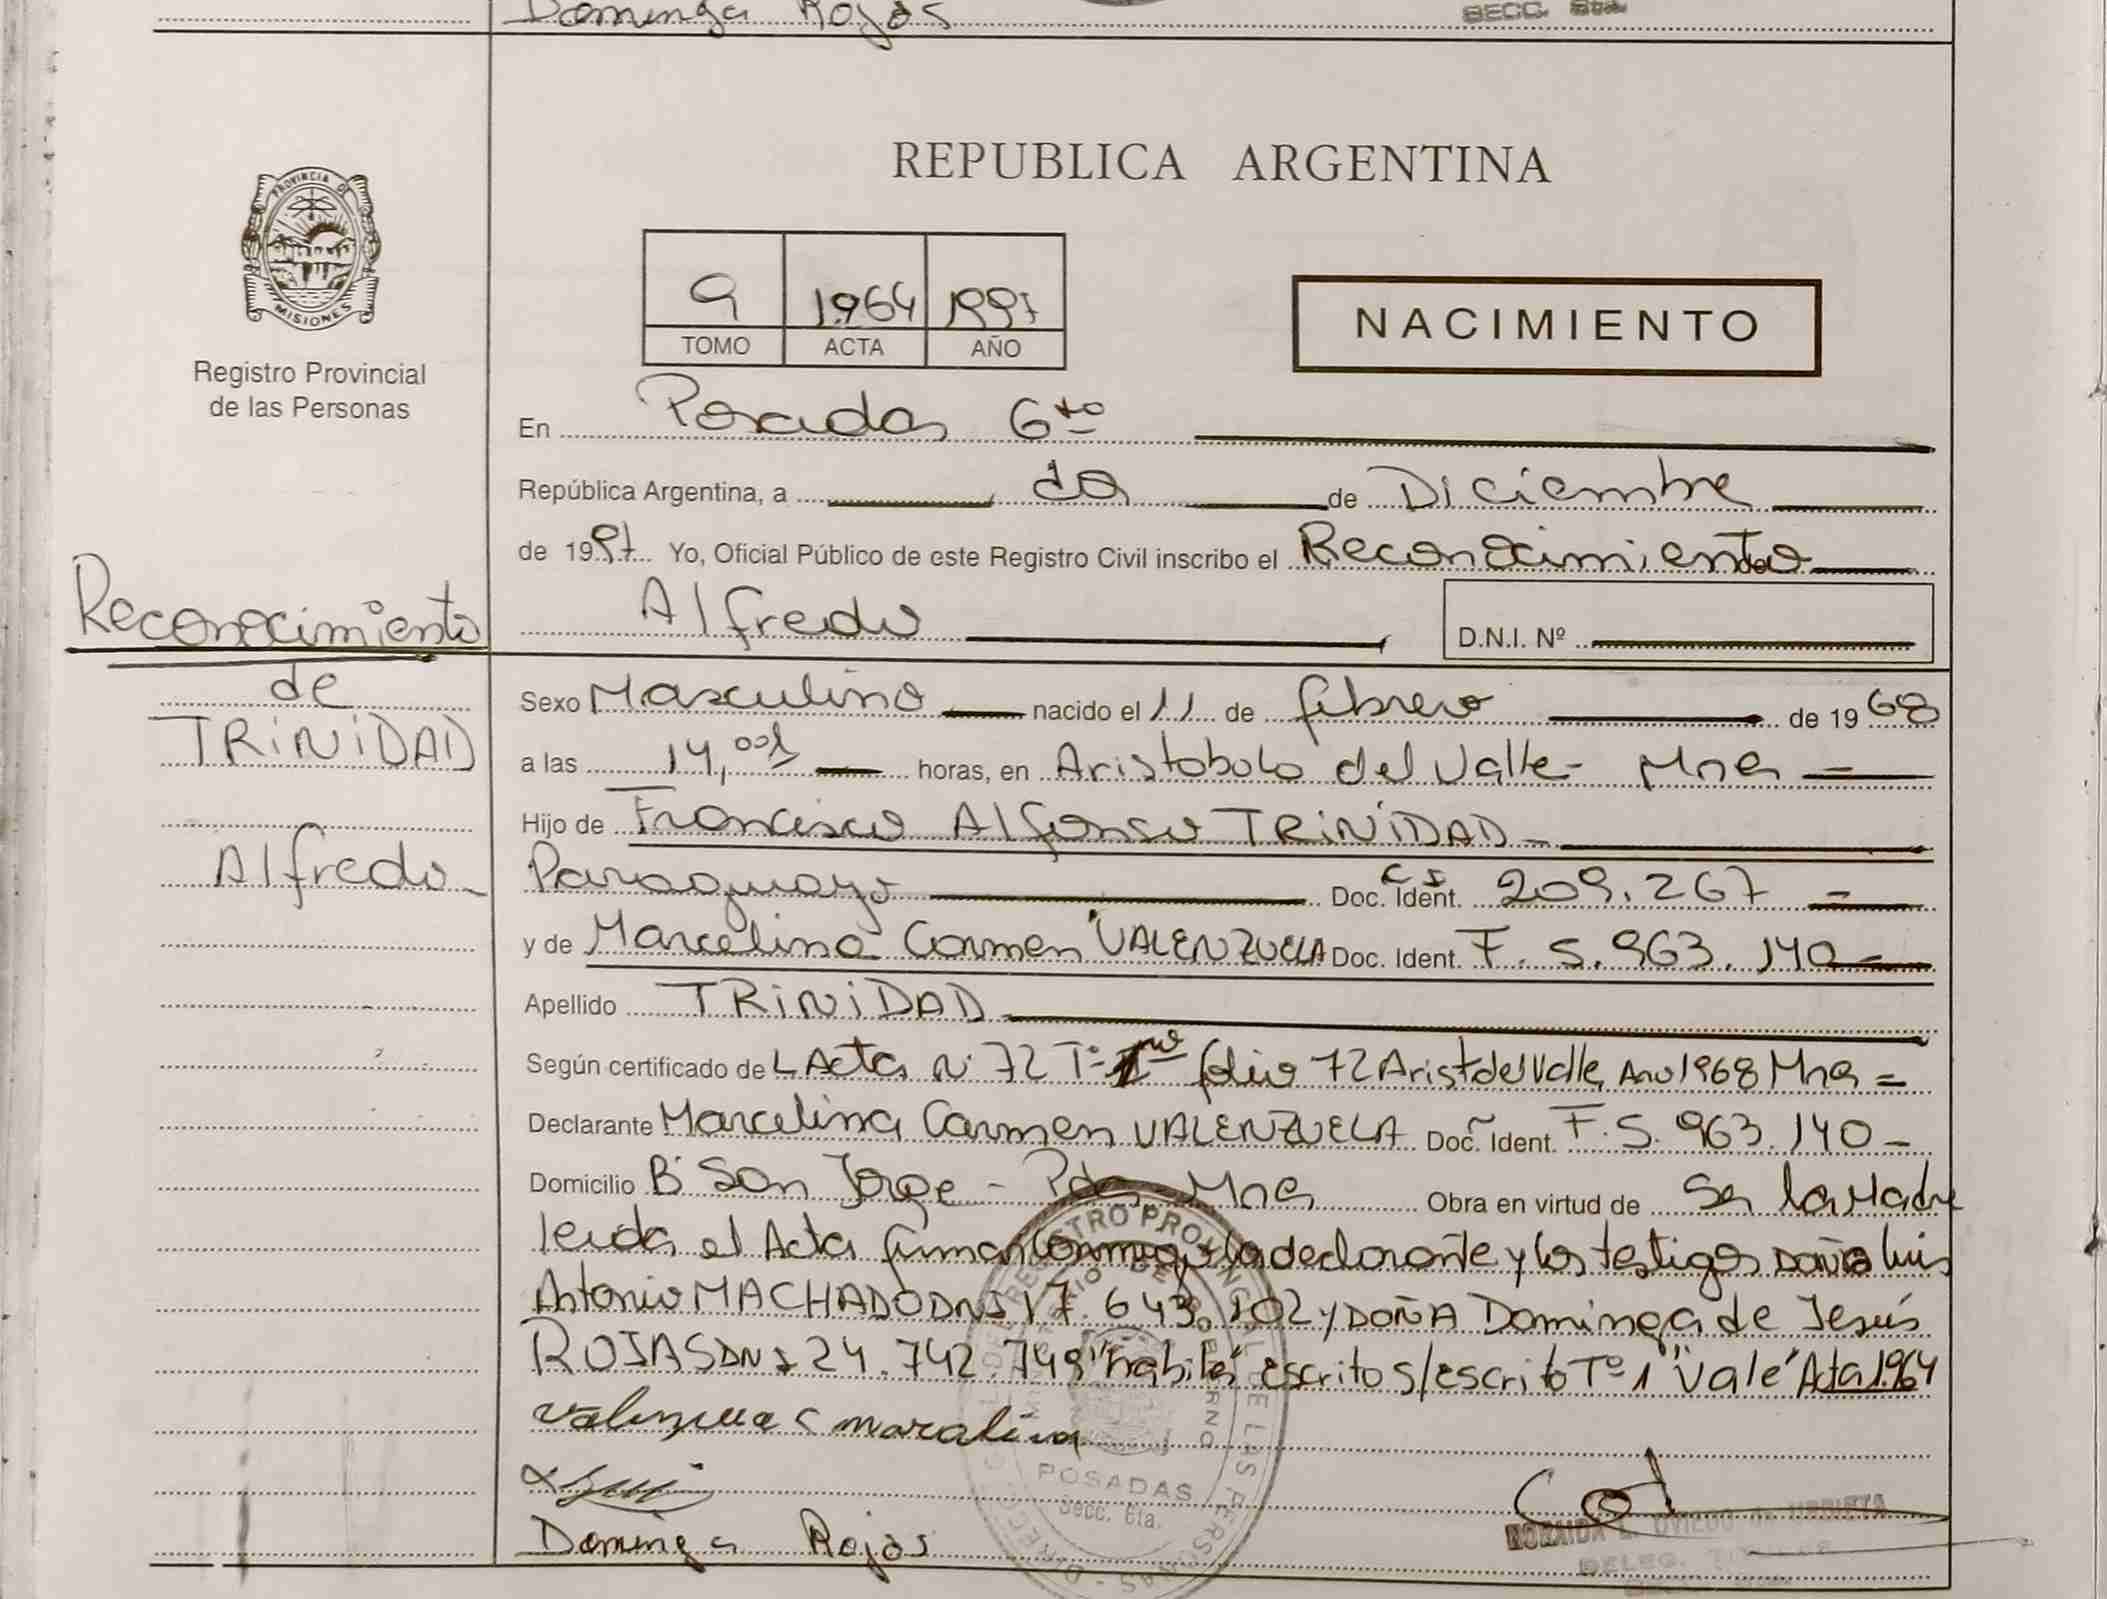 Dominga Rojas
SECC. 6ta.
PROVINCIA DE
MISIONES
Registro Provincial
de las Personas
REPUBLICA ARGENTINA
9 1964 1997
TOMO ACTA AÑO
NACIMIENTO
En Posadas 6ta
República Argentina, a de Diciembre
de 1997 Yo, Oficial Público de este Registro Civil inscribo el Reconocimiento
Alfredo D.N.I. Nº
Reconocimiento
de
TRINIDAD
Alfredo
Sexo Masculino nacido el 11 de febrero de 1968
a las 14,00 horas, en Aristobolo del Valle - Mnes
Hijo de Francisco Alfonso TRINIDAD
Paraguayo Doc. Ident. CI 209.267
y de Marcelina Carmen VALENZUELA Doc. Ident. F. 5.963.140
Apellido TRINIDAD
Según certificado de L Acta Nº 72 Tº folio 72 Arist del Valle Año 1968 Mnes
Declarante Marcelina Carmen VALENZUELA Doc. Ident. F. 5.963.140
Domicilio Bº San Jorge - Pdas Mnes Obra en virtud de Ser la Madre
leida el Acta firman conmigo la declarante y los testigos Luis
Antonio MACHADO DNI 17.643.102 y DOÑA Dominga de Jesús
ROJAS DNI 24.742.749 escrito s/escrito Tº 1 "Vale" Acta 1964
Valenzuela C
Dominga Rojas
REGISTRO PROVINCIAL DE LAS PERSONAS
POSADAS
Secc. 6ta.
NORAIDA E. OVIEDO de URRIETA
DELEG. TITULAR